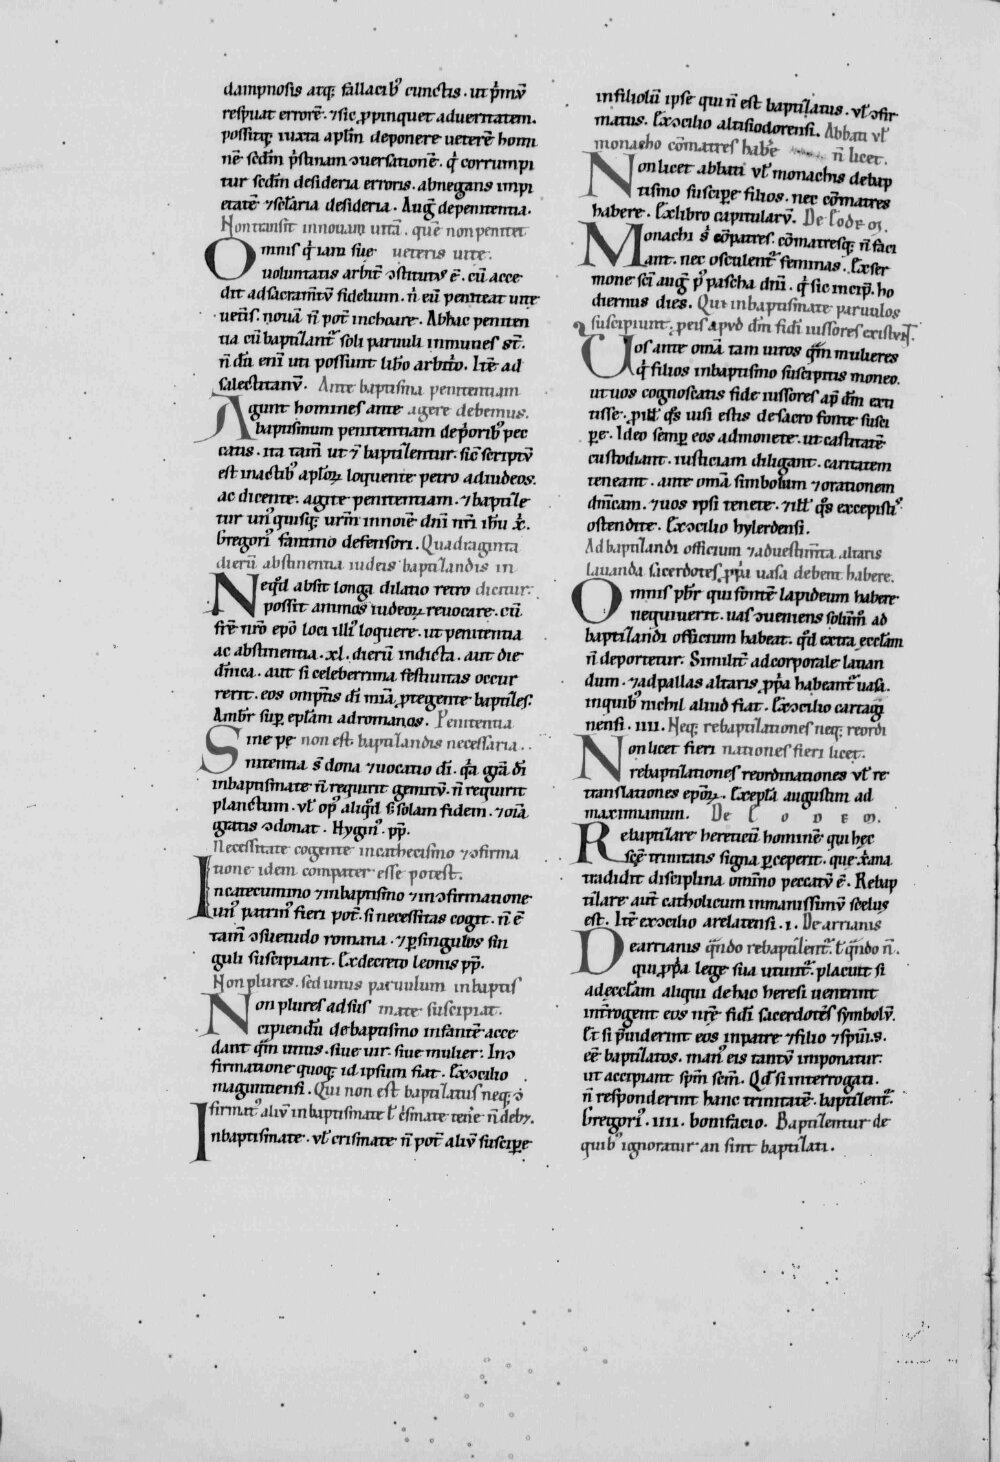 dampnosis atq; fallacib᾽ cunctis. ut p̓mū
respuat errorē. ⁊ sic p̱pinquet ad ueritatem.
possitq; iuxta apl̄m deponere ueterē homi
nē sedm̄ p̓stinam ɔuersationē. q̓ corrumpi
tur sedm̄ desideria erroris. abnegans impi
etatē ⁊ sc̄laria desideria. Aug̃ de penitentia.
Non transit in nouam uitā. quē non penitet
Omnis q̓ iam sue ueteris uite.
uoluntatis arbit̄ ɔstitut᾽ ē. cū acce
dit ad sacram̄tū fidelium. n̓ eū peniteat uite
uet̄is. nouā n̄ pot̄ inchoare. Ab hac peniten
tia cū baptizant᾽ soli paruuli inmunes st̄.
n̄ dū eni᾽ uti possunt lib̓o arbit̓o. Itē ad
salestitanū. Ante baptisma penitentiam
Agunt homines ante agere debemus.
baptismum penitentiam de p̓orib᾽ pec
catis. ita tam̄ ut ⁊ baptizentur. sic̄ scriptū
est in actib᾽ apl̓oꝝ loquente petro ad iudeos.
ac dicente. agite penitentiam. ⁊ baptize
tur un᾽quisq; ur̄m in noīe dn̄i nr̄i ih̓u x̓.
Gregori᾽ fantino defensori. Quadraginta
dierū abstinentia iudeis baptizandis in
Neq᾽d absit longa dilatio retro dicitur.
possit animas iudeoꝝ reuocare. cū
fr̄e nr̄o ep̄o loci illi᾽ loquere. ut penitentia
ac abstinentia. xl. dierū indicta. aut die
dn̄ica. aut si celeberrima festiuitas occur
rerit. eos omp̄tis di᾽ mia᾽ p̱tegente baptizes.
Ambr̓ sup̱ epl̄am ad romanos. Penitentia
Sine pe non est baptizandis necessaria.
nitentia s̄ dona ⁊ uocatio di᾽. q̓a gr̄a di᾽
in baptismate n̄ requirit gemitū. n̄ requirit
planctum. ul̓ op᾽ aliq᾽d s̓ solam fidem. ⁊ oīa
gratis ɔdonat. Hygin᾽ pp̄.
Necessitate cogente in cathecismo ⁊ ɔfirma
tione idem compater esse potest.
In catecummo ⁊ in baptismo ⁊ in ɔfirmatione
un᾽ patrin᾽ fieri pot̄. si necessitas cogit. n̄ ē
tam̄ ɔsuetudo romana. ⁊ p̱ singulos sin
guli suscipiant. Ex decreto leonis pp̄.
Non plures. sed unus paruulum in baptis
Non plures ad sus mate suscipiat.
cipiendū de baptismo infantē acce
dant qm̄ unus. siue uir. siue mulier. In ɔ
firmatione quoq; id ipsum fiat. Ex ɔcilio
maguntiensi. Qui non est baptizatus neq; ɔ
firmat᾽ aliū in baptismate l̓ c̓smate tene᾽ n̄ deb;.
In baptismate. ul̓ crismate n̄ pot̄ aliū suscip̱e
in filiolū ipse qui n̄ est baptizatus. ul̓ ɔfir
matus. Ex ɔcilio altisiodorensi. Abbati ul̓
monacho cōmatres habe᾽ n̄ licet.
Non licet abbati ul̓ monachis de bap
tismo suscip̱e filios. nec cōmatres
habere. Ex libro capitularū. De eodem.
Monachi s᾽ cōpatres. cōmatresq; n̄ faci
ant. nec osculent᾽ feminas. Ex ser
mone sci᾽ aug̃ p᾽ pascha dn̄i. q̓ sic incip̱. ho
diernus dies. Qui in baptismate paruulos
suscipiunt. p̱ eis apud dm̄ fidei iussores existunt.
Uos ante om̄a tam uiros qm̄ mulieres
q̓ filios in baptismo suscipitis moneo.
ut uos cognoscatis fide iussores ap᾽ dm̄ exti
tisse. p̱ ill᾽ q᾽s uisi estis de sacro fonte susci
p̱e. Ideo semp̱ eos admonete. ut castitatē
custodiant. iusticiam diligant. caritatem
teneant. ante om̄a simbolum ⁊ orationem
dn̄icam. ⁊ uos ipsi tenete. ⁊ ill᾽ q᾽s excepisti᾽
ostendite. Ex ɔcilio hylerdensi.
Ad baptizandi officium ⁊ ad uestim̄ta altaris
lauanda sacerdotes p̱p̓a uasa debent habere.
Omnis pb̓r qui fontē lapideum habere
nequiuerit. uas ɔueniens solūm᾽ ad
baptizandi officium habeat. q᾽d extra eccl̄am
n̄ deportetur. Similit̄ ad corporale lauan
dum. ⁊ ad pallas altaris p̱p̓a habeant᾽ uasa.
in quib᾽ nichil aliud fiat. Ex ɔcilio cartagi
nensi. IIII. Neq; rebaptizationes neq; reordi
Non licet fieri nationes fieri licet.
rebaptizationes reordinationes ul̓ re
translationes ep̄oꝝ. Ex epl̄a augustini ad
maximianum. De Eodem.
Rebaptizare hereticū hominē qui hec
scē trinitatis signa p̱ceperit. que x̓iana
tradidit disciplina omnino peccatū ē. Rebap
tizare aut̄ catholicum inmanissimū scelus
est. Itē ex ɔcilio arelatensi. I. De arrianis
De arrianis q̄ndo rebaptizent᾽. l̓ q̄ndo n̄.
qui p̱p̓a lege sua utunt᾽. placuit si
ad eccl̄am aliqui de hac heresi uenerint
int̄rogent eos nr̄e fidei sacerdotes symbolū.
Et si p̱uiderint eos in patre ⁊ filio ⁊ spū. s.
eē baptizatos. man᾽ eis tantū imponatur.
ut accipiant spm̄ scm̄. Qd᾽ si interrogati.
n̄ responderint hanc trinitatē. baptizent᾽.
Gregori᾽. IIII. bonifacio. Baptizentur de
quib᾽ ignoratur an sint baptizati.